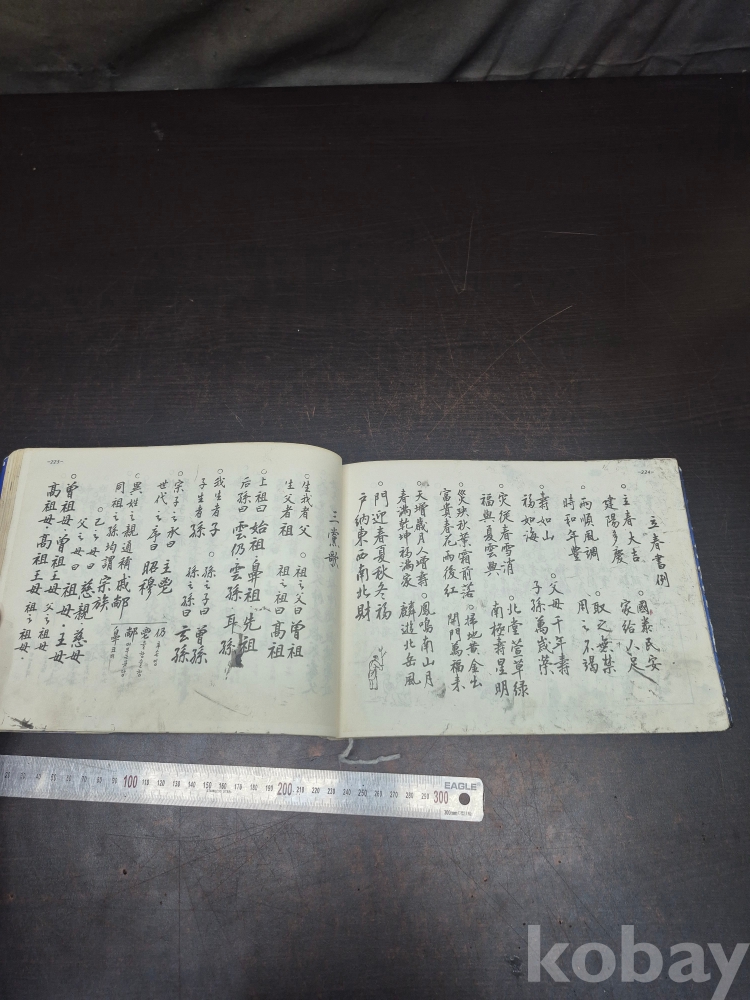 -224-
立春書例
○立春大吉 ○國泰民安
建陽多慶 家給人足
○雨順風調 ○取之無禁
時和年豐 用之不竭
○壽如山 ○父母千年壽
福如海 子孫萬歲榮
○灾從春雪消 ○北堂萱草綠
福與夏雲興 南極壽星明
○災殃秋葉霜前落 ○掃地黄金出
富貴春花雨後紅 開門萬福来
○天增歲月人增壽 ○鳳鳴南山月
春滿乾坤福滿家 麟遊北岳風
○門迎春夏秋冬福
戶納東西南北財
-223-
三黨歌
○生我者父 祖之父曰曾祖
生父者祖 祖之祖曰高祖
○上祖曰始祖·鼻祖·先祖
后孫曰雲仍雲孫·耳孫
○我生者子 ○孫之子曰曾孫
子生者孫 孫之孫曰玄孫
○宗子之承曰 主鬯
世代之序曰 昭穆
○異姓之親通稱戚
同祖之孫均謂宗族
仍
鬯
鼻
○己之母曰 慈親 慈母
父之母曰 祖母·王母
○曾祖母·曾祖王母 父之祖母
高祖母·高祖王母 祖之祖母·
100 200 300
EAGLE
kobay